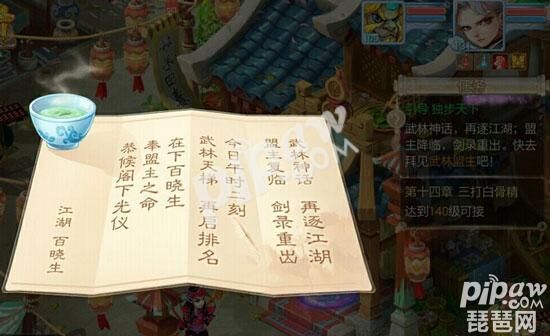 武林神话 再逐江湖
盟主复临 剑录重出
今日午时二刻
武林天梯 再启排名
在下百晓生
奉盟主之命
恭候阁下光仪
江湖 百晓生
引导 独步天下
武林神话，再逐江湖；盟
主降临，剑录重出，快去
拜见武林盟主吧！
第十四章 三打白骨精
达到140级可接
pipaw
pipaw.com
琵琶网